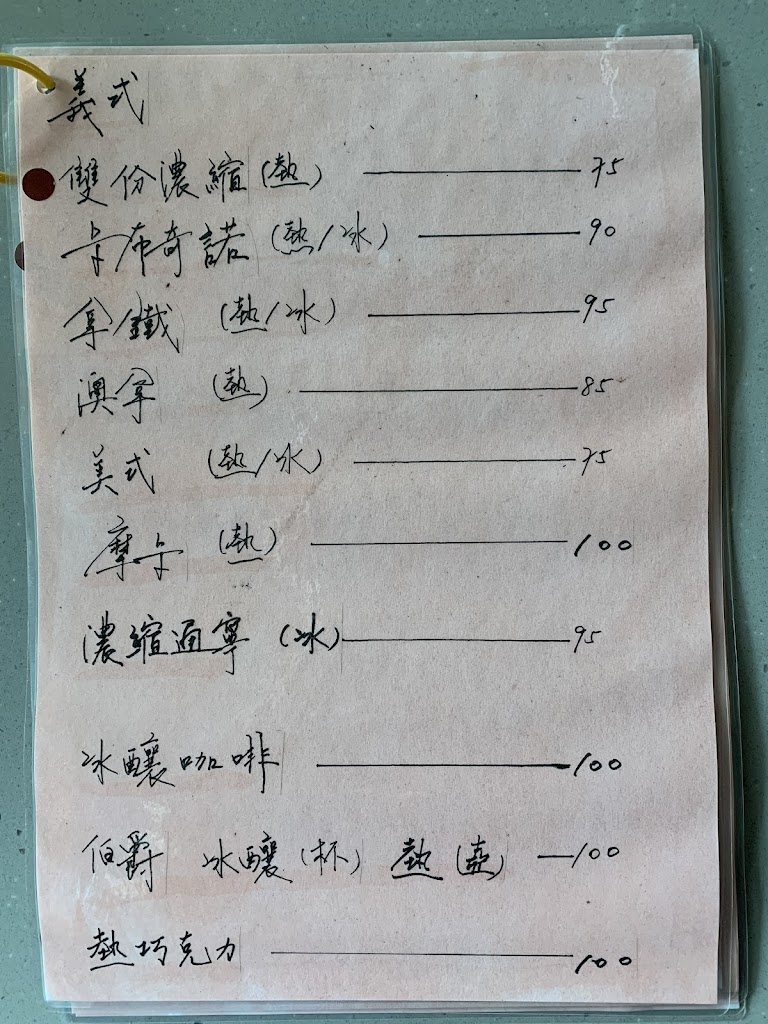 義式
雙份濃縮(熱) 75
卡布奇諾 (熱/冰) 90
拿鐵 (熱/冰) 95
澳拿 (熱) 85
美式 (熱/冰) 75
摩卡 (熱) 100
濃縮通寧 (冰) 95
冰釀咖啡 100
伯爵 冰釀(杯) 熱(壺) 100
熱巧克力 100